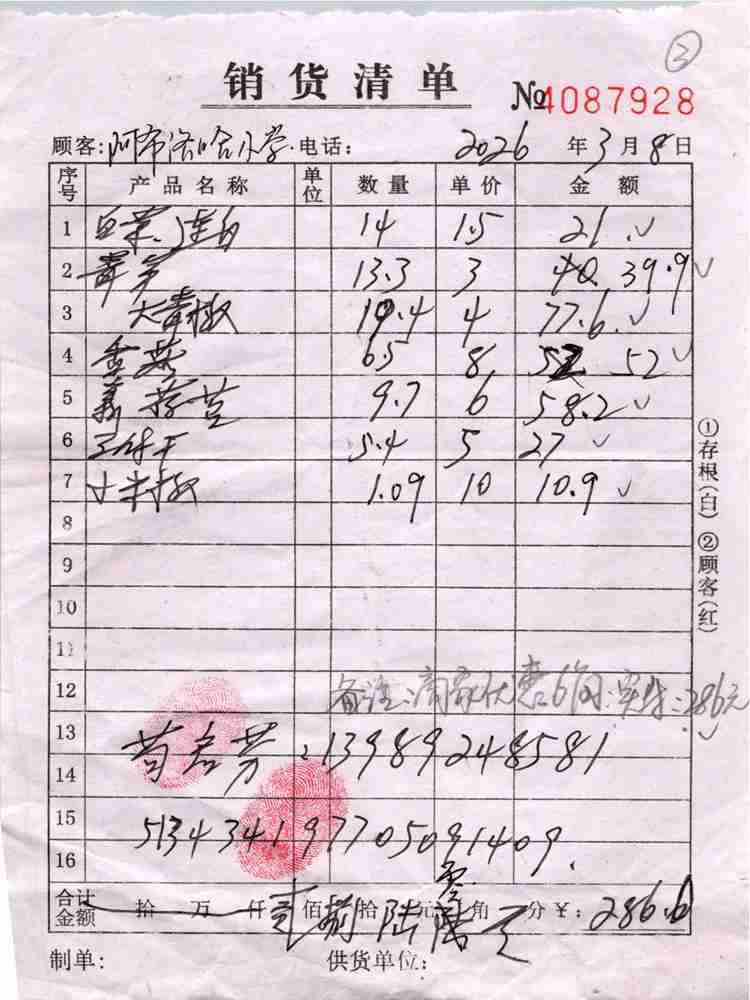 ②
销货清单
№4087928
顾客:阿布洛哈小学 电话: 2026年3月8日
序号 产品名称 单位 数量 单价 金额
1 白菜.莲白 14 1.5 21
2 青笋 13.3 3 39.9
3 大青椒 19.4 4 77.6
4 香菇 6.5 8 52
5 9.7 6 58.2
6 豆付干 5.4 5 27
7 小米椒 1.09 10 10.9
8
9
10
11
12 备注:商家优惠0.6角.实付:286元
13 芳:13989248581
14
15 513434197705091409
16
合计金额 拾 万 仟 贰佰捌拾陆元零角 分 ¥:286.0
制单: 供货单位:
①存根(白) ②顾客(红)